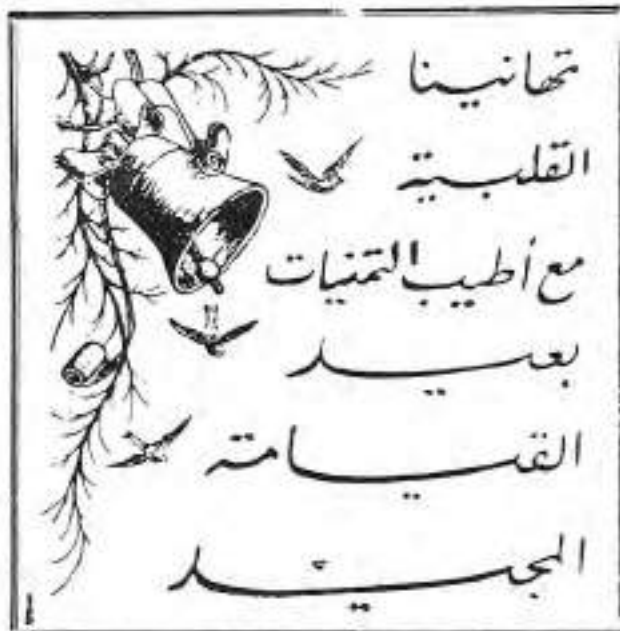 تهانينا
القلبية
مع أطيب التمنيات
بعيد
القيامة
المجيد